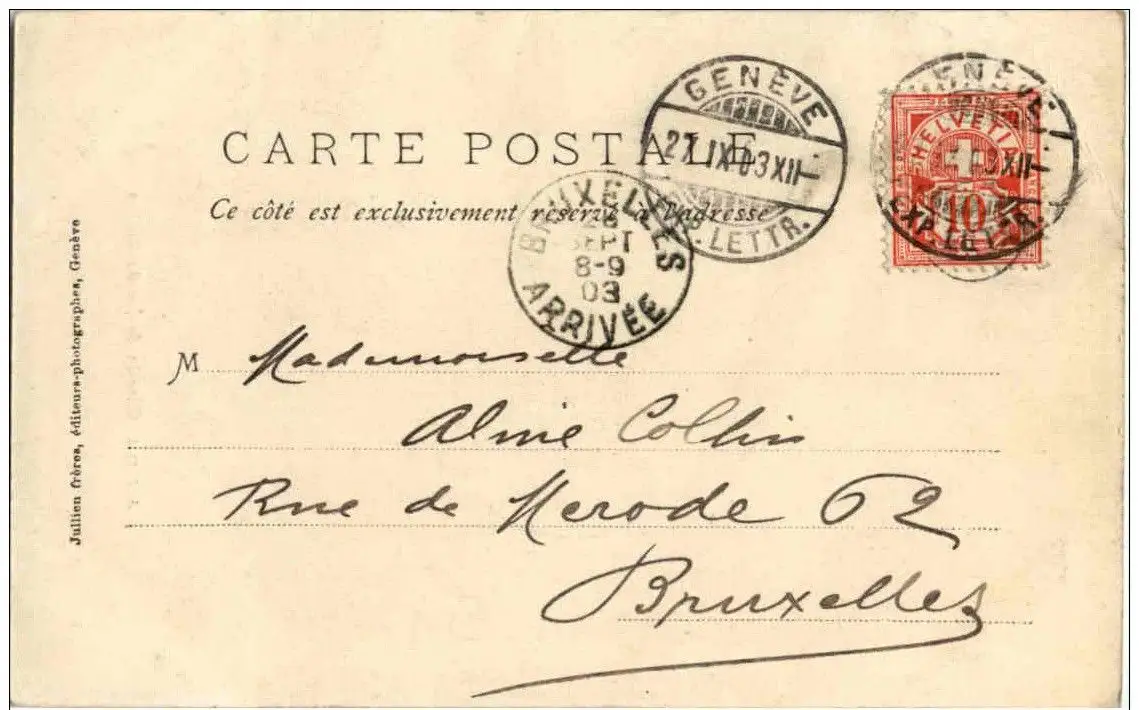 GENÈVE
27.IX.03 XII
EXP. LETTR.
GENÈVE
03 XII
EXP. LETTR.
HELVETIA
10
CARTE POSTALE
Ce côté est exclusivement réservé à l'adresse
BRUXELLES
28
SEPT
8-9
03
ARRIVÉE
M Mademoiselle
Aline Collin
Rue de Merode 62
Bruxelles
Jullien frères, éditeurs-photographes, Genève